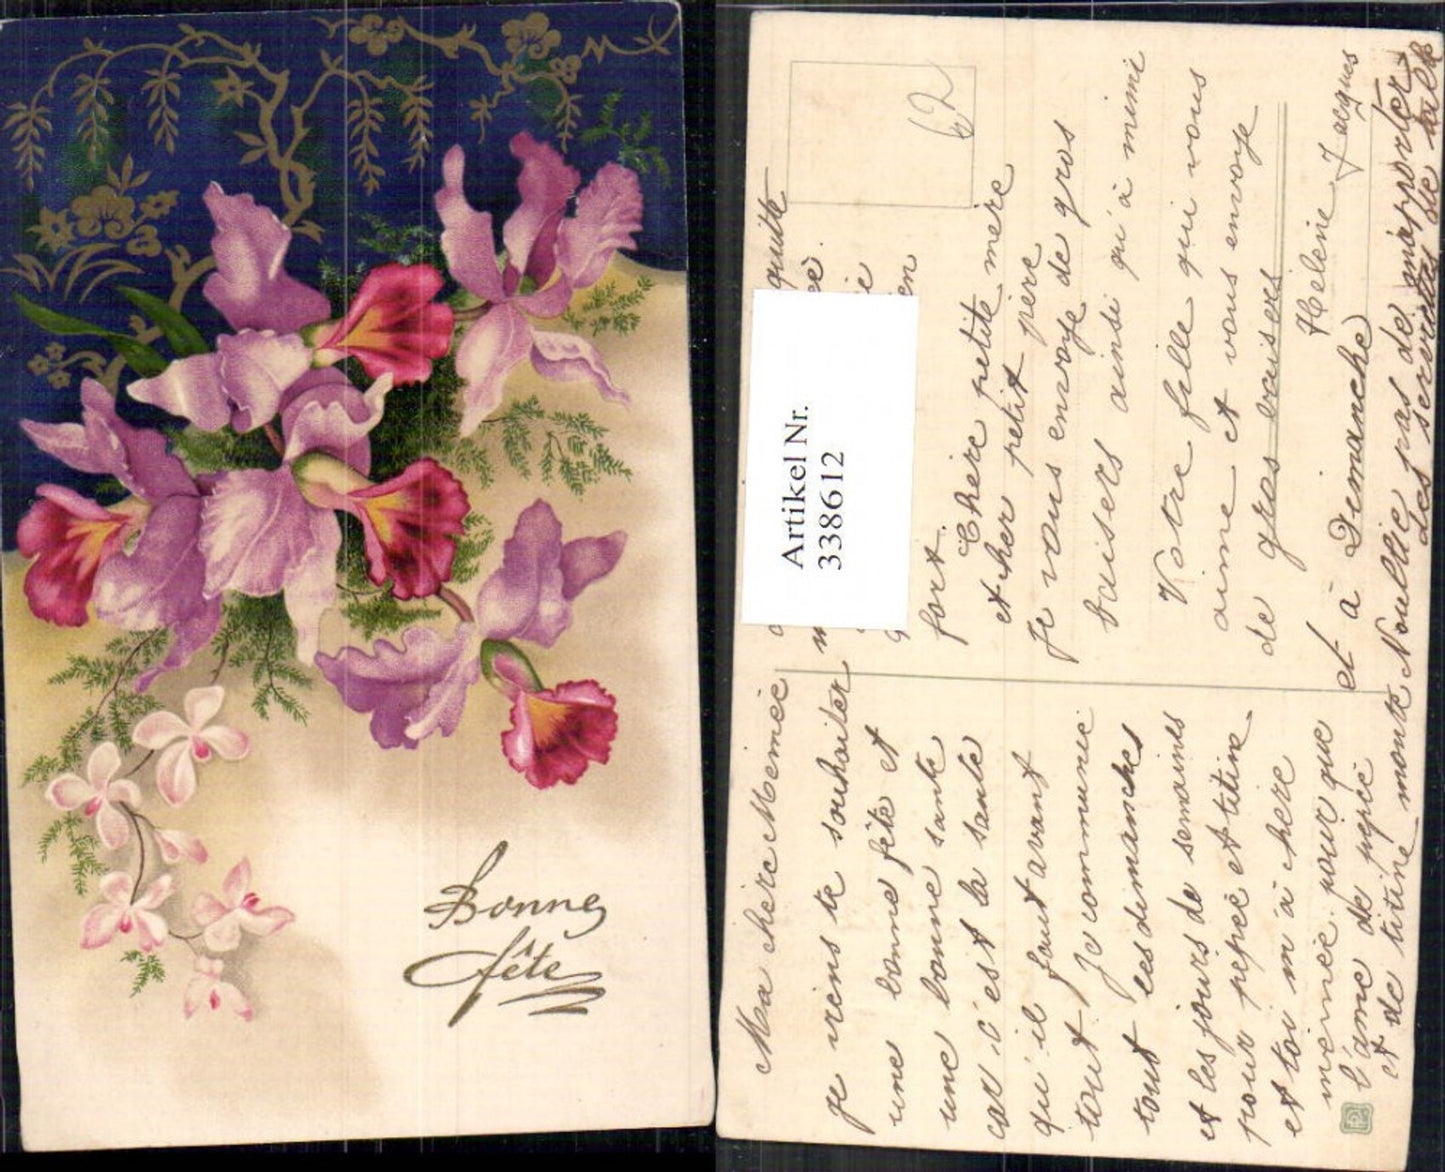 Bonne
fête
62
Artikel Nr.
3386I2
Ma chère Mémée
je viens te souhaiter
une bonne fête et
une bonne sante
car c'est la sante
qu'il faut avant
tout Je communie
tout les dimanches
et les jours de semaines
pour pépée et titine
et toi m'a chère
mémée pour que
l'ame de pépée
et de titine monte
quitte
fort.
Chère petite mère
et cher petit père
Je vous envoye de gros
baisers ainsi qu'à mimi
Votre fille qui vous
aime et vous envoye
de gros baisers
Helene Jacques
et à Dimanche
N'oublie pas de m'apporter
les serviettes de table